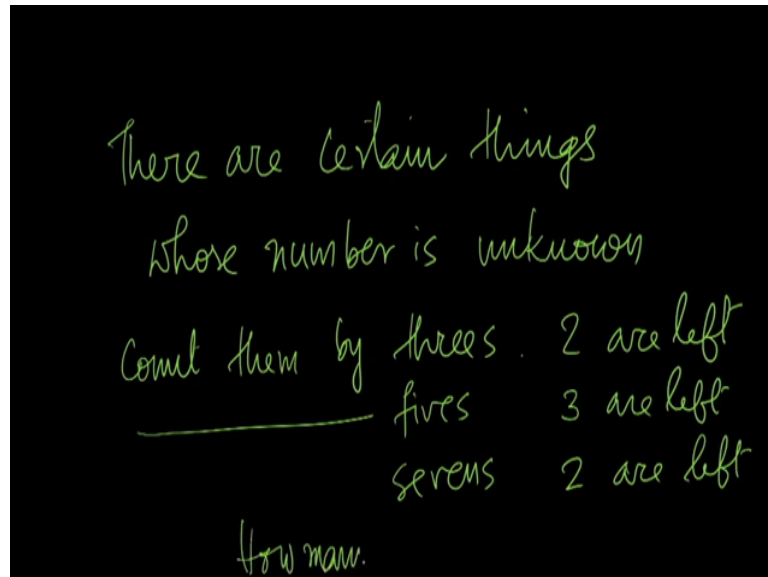 There are certain things
whose number is unknown
Count them by threes. 2 are left
fives 3 are left
sevens 2 are left
How man.